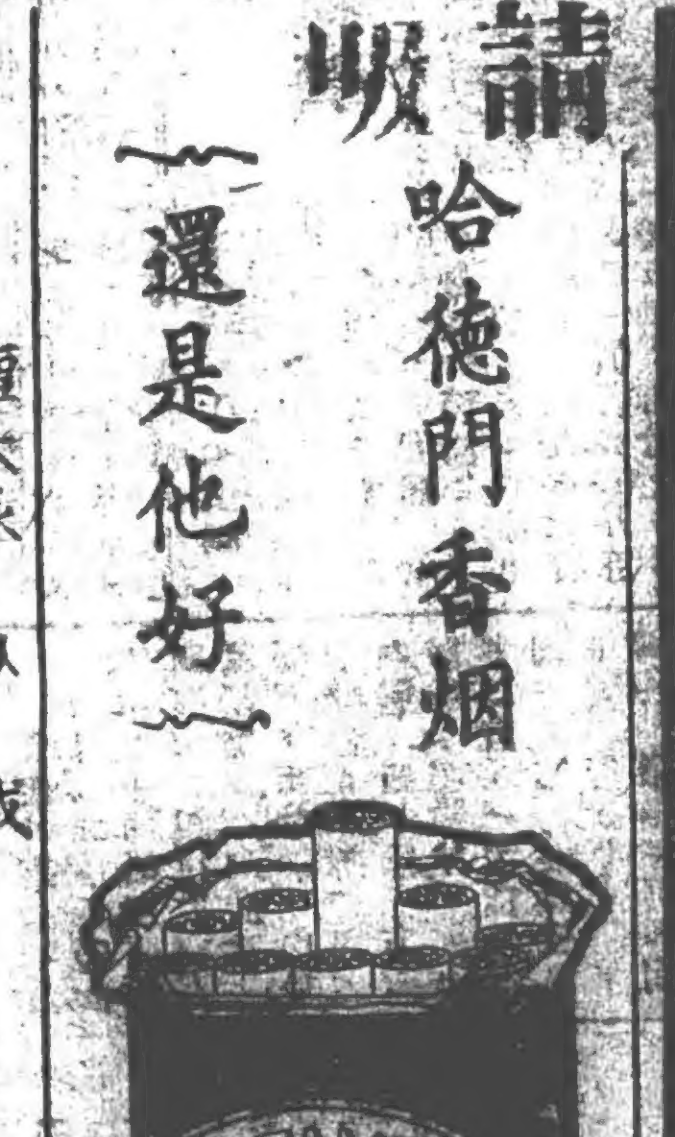 請吸
哈德門香烟
還是他好